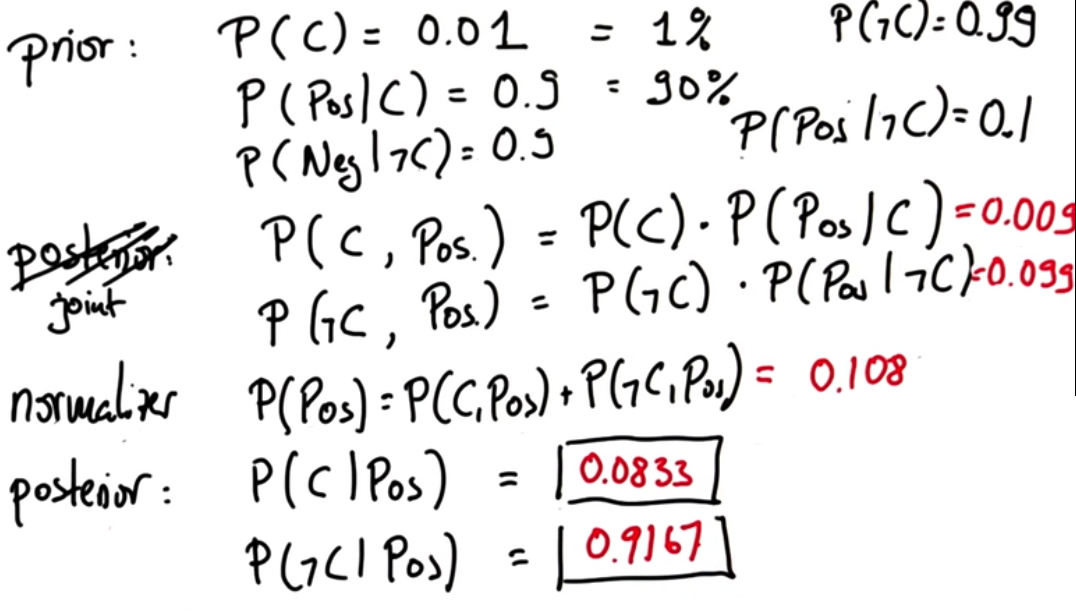 prior: P(C) = 0.01 = 1% P(¬C) = 0.99
P(Pos|C) = 0.9 = 90%
P(Pos|¬C) = 0.1
P(Neg|¬C) = 0.9
posterior: P(C, Pos.) = P(C) · P(Pos|C) = 0.009
joint P(¬C, Pos.) = P(¬C) · P(Pos|¬C) = 0.099
normalizer P(Pos) = P(C,Pos) + P(¬C,Pos) = 0.108
posterior: P(C|Pos) = 0.0833
P(¬C|Pos) = 0.9167